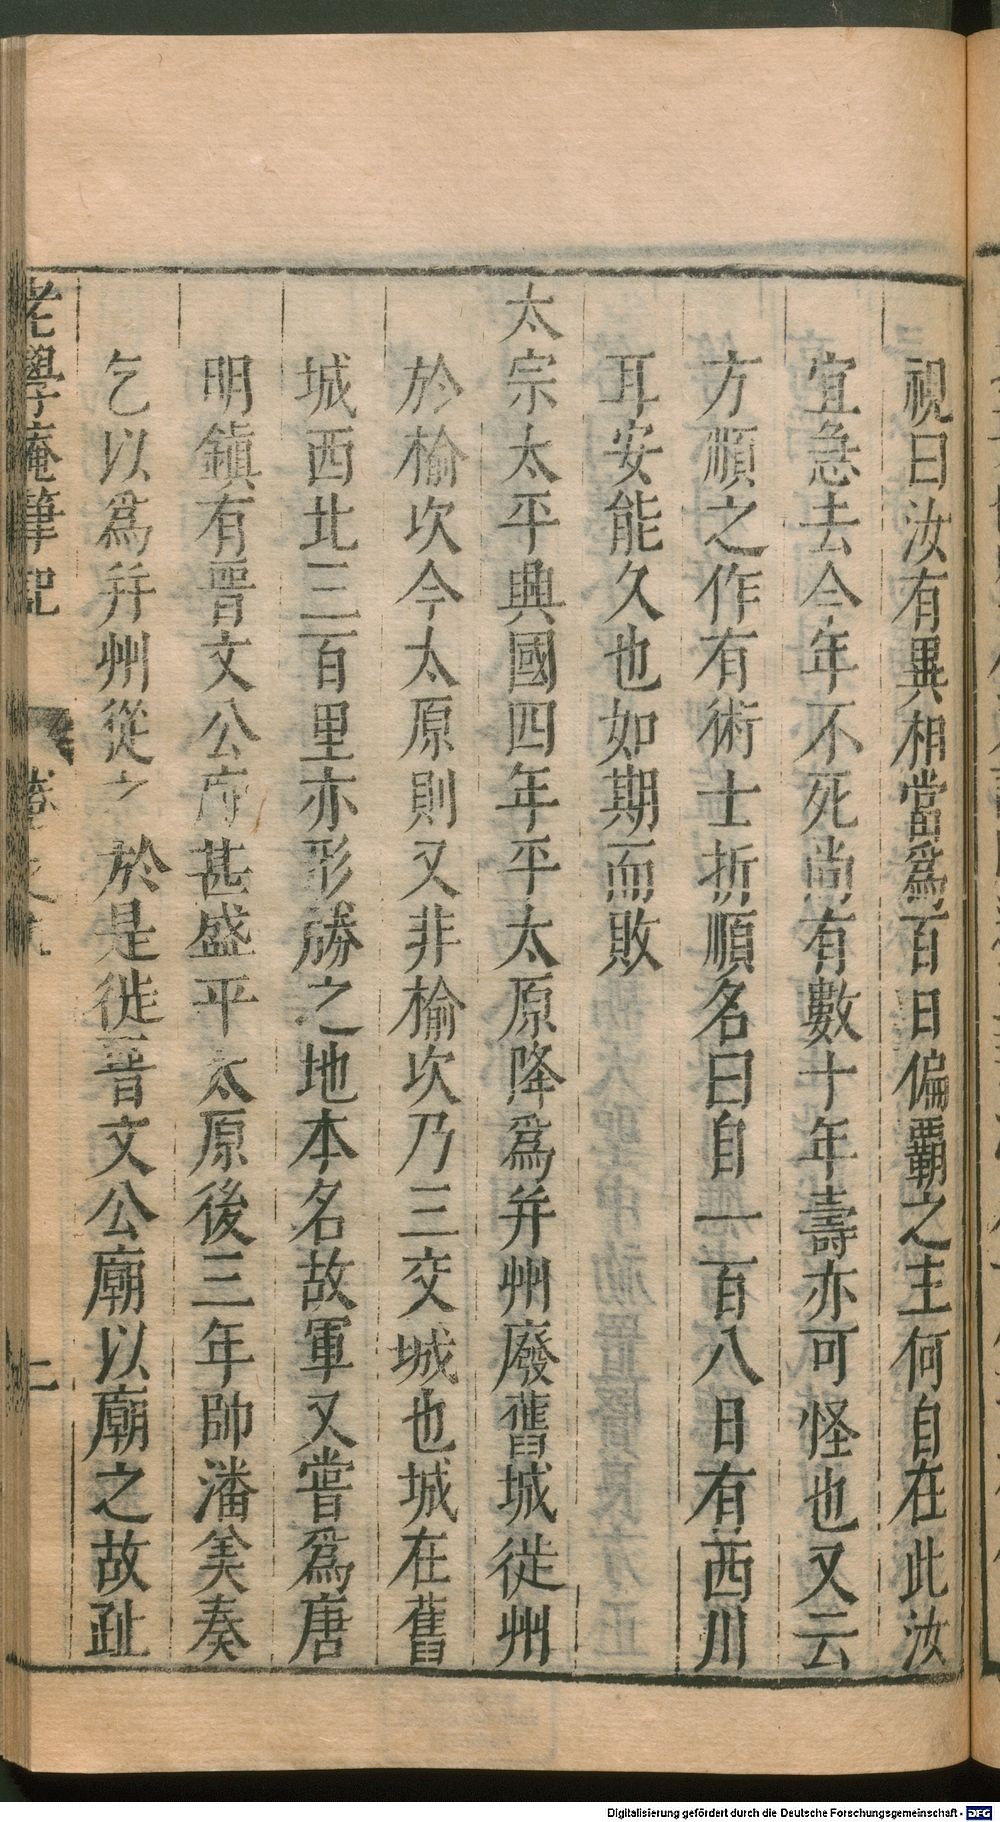 視曰汝有異相當爲百日偏覇之主何自在此汝
宜急去今年不死尚有數十年壽亦可怪也又云
方順之作有術士折順名曰自一百八日有西川
耳安能久也如期而敗
太宗太平興國四年平太原降爲并州廢舊城徙州
於榆次今太原則又非榆次乃三交城也城在舊
城西北三百里亦形勝之地本名故軍又嘗爲唐
明鎮有晉文公廟甚盛平太原後三年帥潘美奏
乞以爲并州從之於是徙晉文公廟以廟之故趾
老學庵筆記 卷之九 二
Digitalisierung gefördert durch die Deutsche Forschungsgemeinschaft - DFG